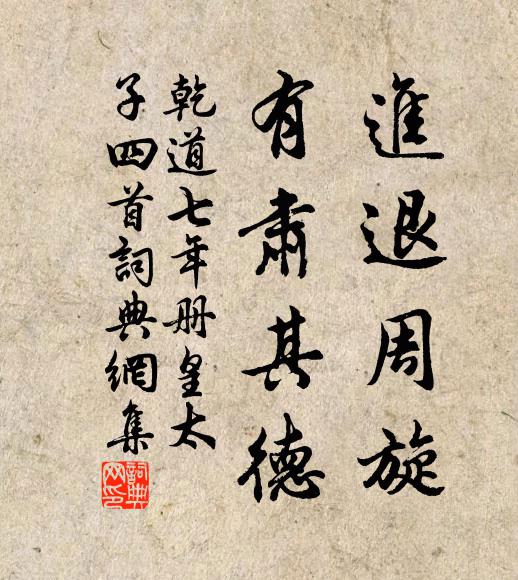 進退周旋
有肅其德
乾道七年册皇太
子四首詞典網集
詞典网印